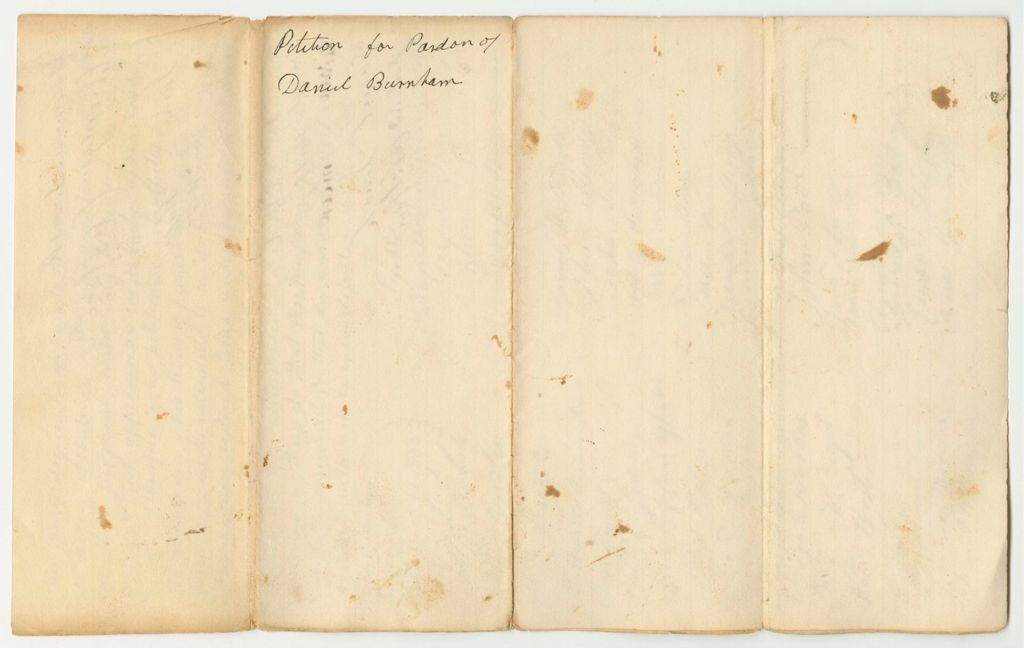 Petition for Pardon of
Daniel Burnham